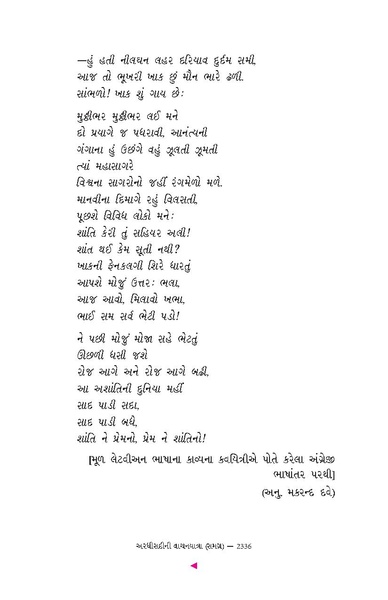 —હું હતી નીલઘન લહર દરિયાવ દુર્દમ સમી,
આજ તો ભૂખરી ખાક છું મૌન ભારે ઢળી.
સાંભળો! ખાક શું ગાય છે:
મુઠ્ઠીભર મુઠ્ઠીભર લઈ મને
દો પ્રયાગે જ પધરાવી, આનંત્યની
ગંગાના હું ઉછંગે વહું ઝૂલતી ઝૂમતી
ત્યાં મહાસાગરે
વિશ્વના સાગરોનો જહીં રંગમેળો મળે.
માનવીના દિમાગે રહું વિલસતી,
પૂછશે વિવિધ લોકો મને:
શાંતિ કેરી તું સહિયર અલી!
શાંત થઈ કેમ સૂતી નથી?
ખાકની ફેનકલગી શિરે ધારતું
આપશે મોજું ઉત્તર: ભલા,
આજ આવો, મિલાવો ખભા,
ભાઈ સમ સર્વ ભેટી પડો!
ને પછી મોજું મોજા સહે ભેટતું
ઊછળી ધસી જશે
રોજ આગે અને રોજ આગે બઢી,
આ અશાંતિની દુનિયા મહીં
સાદ પાડી સદા,
સાદ પાડી બધે,
શાંતિ ને પ્રેમનો, પ્રેમ ને શાંતિનો!
[મૂળ લેટવીઅન ભાષાના કાવ્યના કવયિત્રીએ પોતે કરેલા અંગ્રેજી
ભાષાંતર પરથી]
(અનુ. મકરન્દ દવે)
અરધીસદીની વાચનયાત્રા (સમગ્ર) — 2336